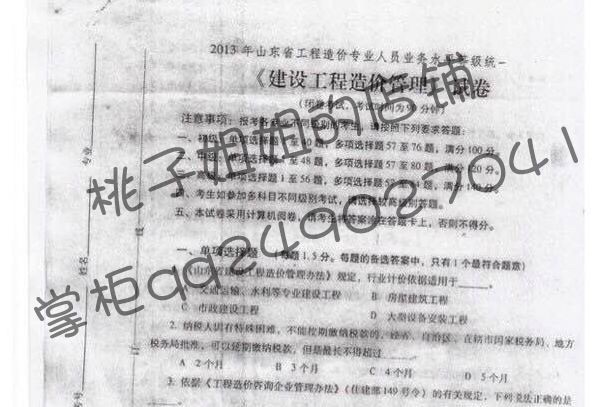 2013年山东省工程造价专业人员业务水平
级统一
《建设工程造价管理
试卷
注意事项：报考各
不同级别的考生，请按照下列要求答题：
一、初级：单项选择题1至40题，多项选择题57至76题，满分100分。
二、中级：单项选择题
至48题，多项选择题57至80题，满分120分。
单项选择题1至56题，多项选择题57至
满分140分。
四、考生如参加多科目不同级别考试，请选择较高级别答题。
五、本试卷采用计算机阅卷，请考生将答案涂在答题卡上，否则不得分。
一、单项选择题（每题1.5分。每题的备选答案中，只有1个最符合题意）
《山东省建设工程造价管理办法》规定，行业计价依据适用于____。
交通运输、水利等专业建设工程 B 房屋建筑工程
C 市政建设工程 D 大型设备安装工程
2. 纳税人因有特殊困难，不能按期缴纳税款的，经省、自治区、直辖市国家税务局、地方
税务局批准，可以延期缴纳税款，但是最长不得超过____。
A 2个月 B 3个月 C 4个月 D 5个月
3. 依据《工程造价咨询企业管理办法》（住建部149号令）的有关规定，下列说法正确的是
专业
姓名
号
桃子姐姐的店铺
掌柜qq249027041